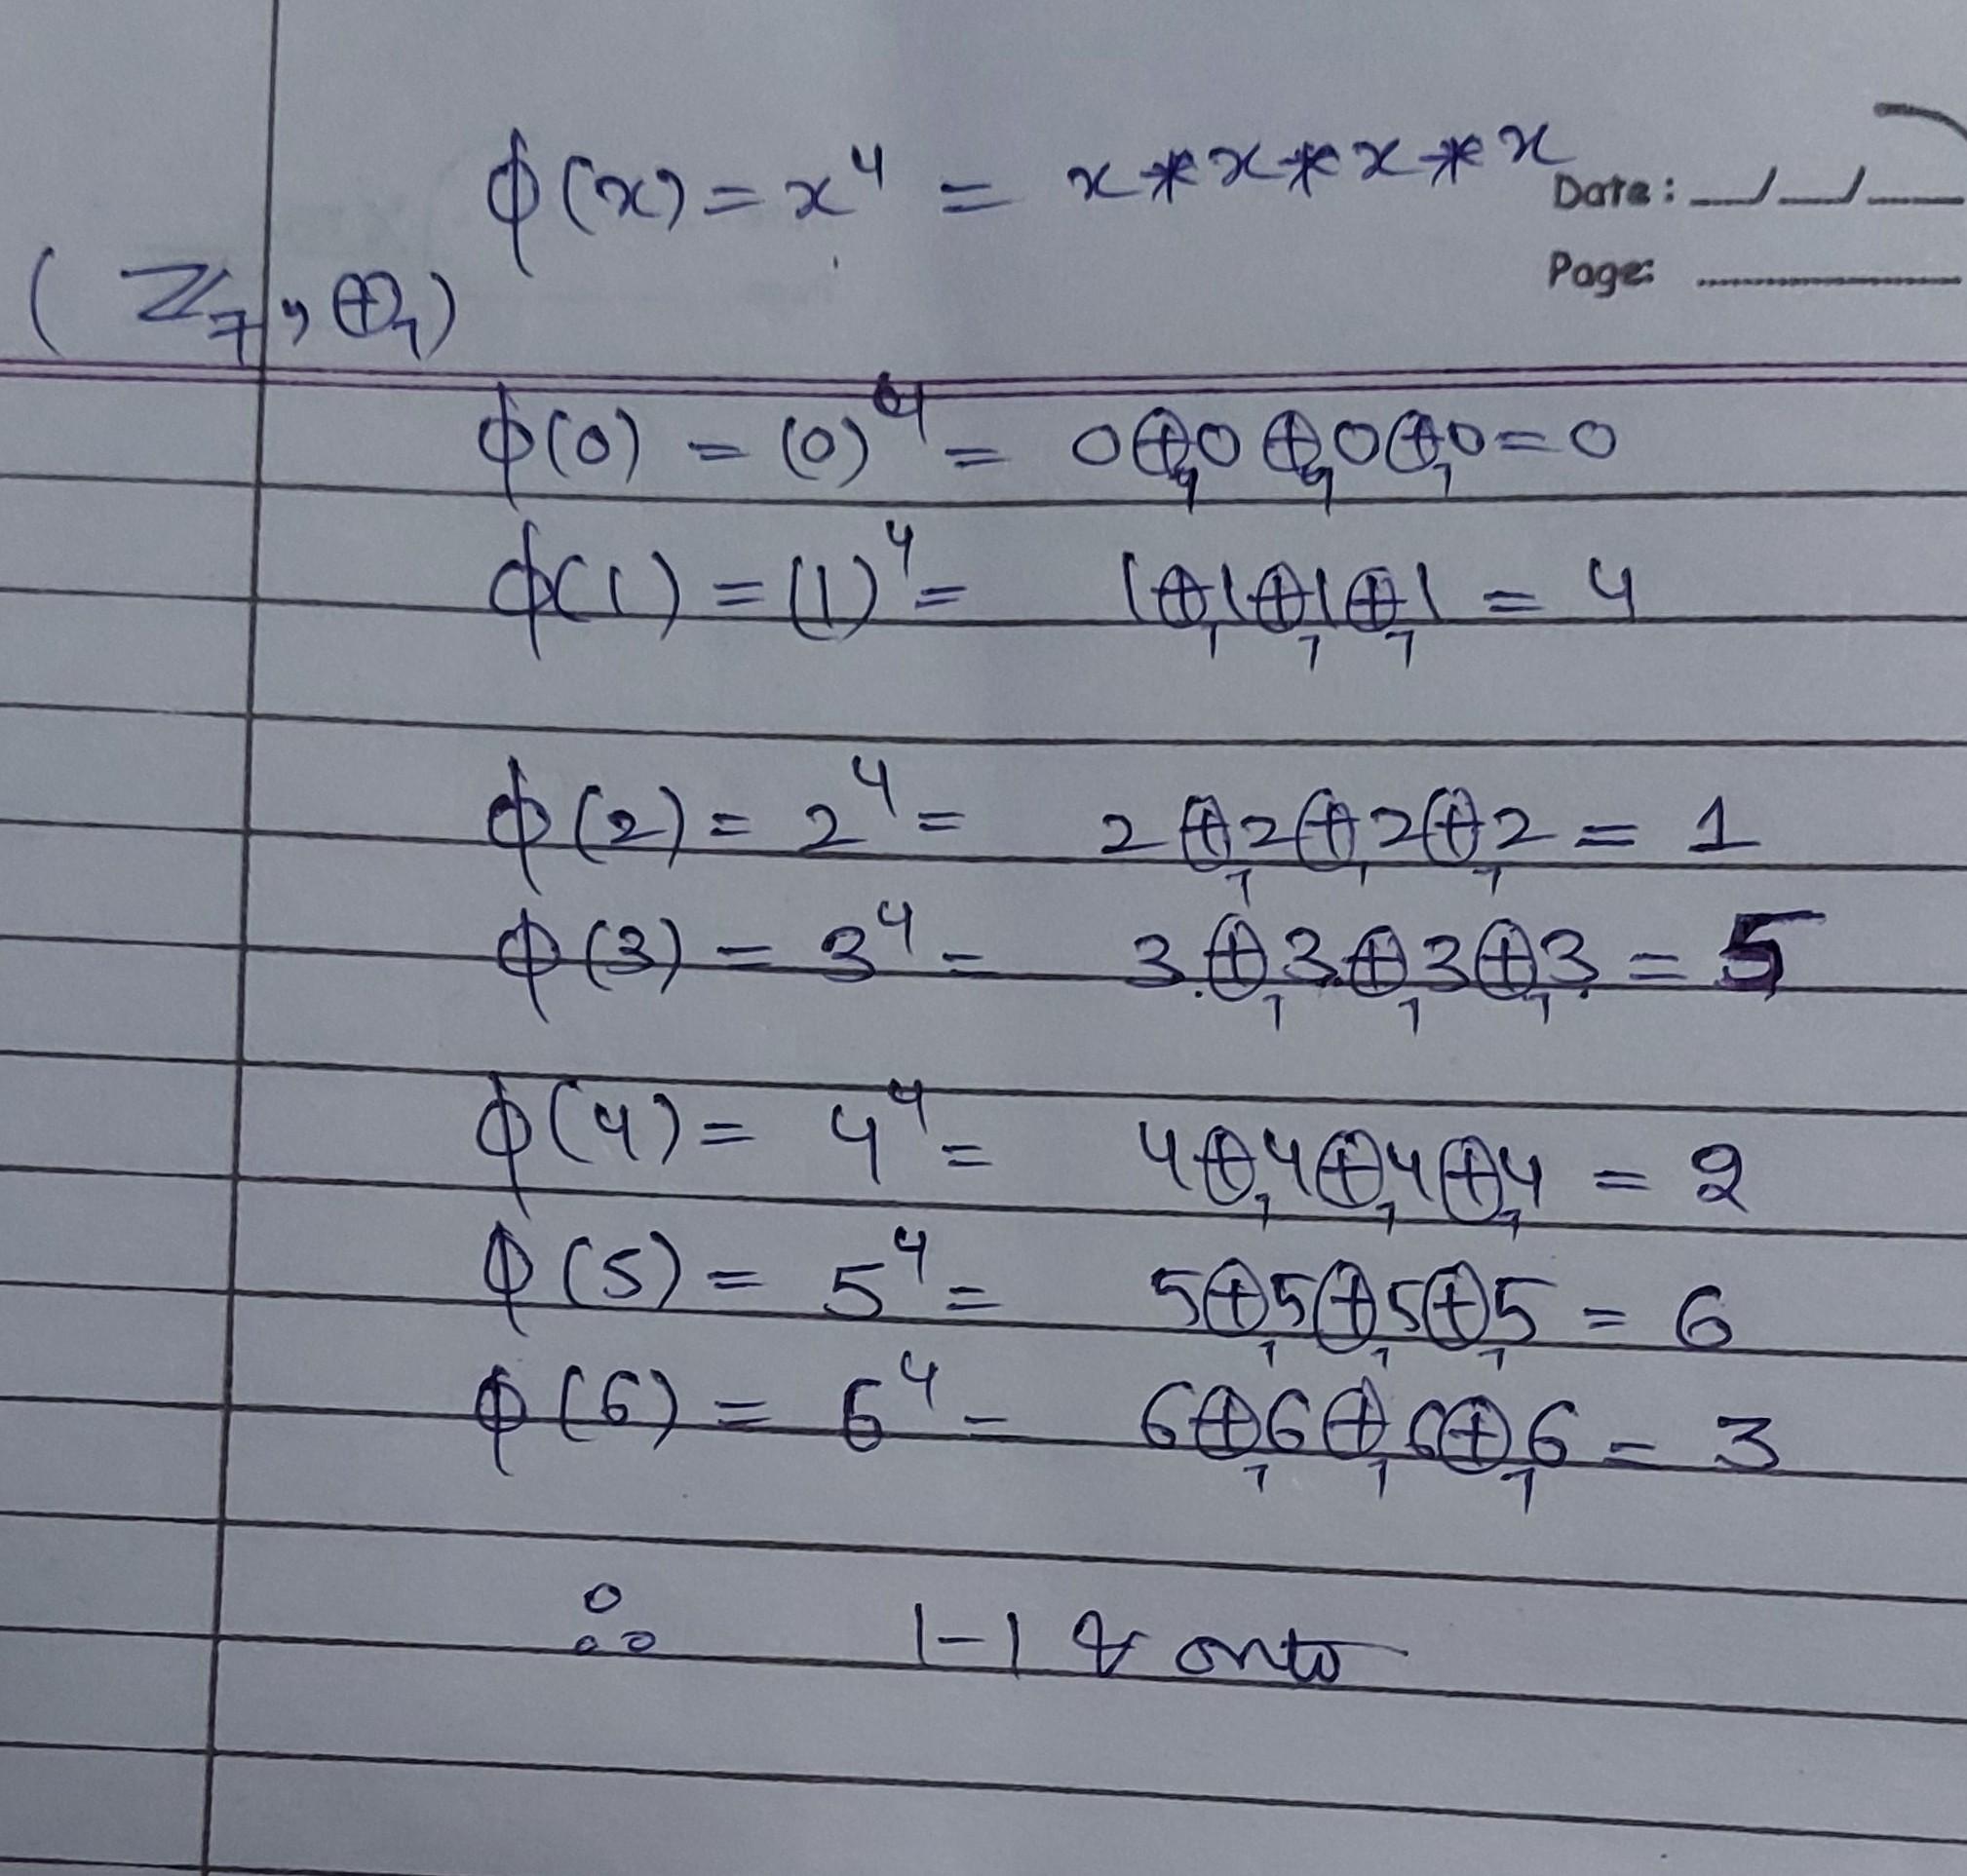 ϕ(x) = x⁴ = x * x * x * x
Date: __/__/__
Page:
(Z₇, ⊕₇)
ϕ(0) = (0)⁴ = 0⊕₇0⊕₇0⊕₇0 = 0
ϕ(1) = (1)⁴ = 1⊕₇1⊕₇1⊕₇1 = 4
ϕ(2) = 2⁴ = 2⊕₇2⊕₇2⊕₇2 = 1
ϕ(3) = 3⁴ = 3⊕₇3⊕₇3⊕₇3 = 5
ϕ(4) = 4⁴ = 4⊕₇4⊕₇4⊕₇4 = 2
ϕ(5) = 5⁴ = 5⊕₇5⊕₇5⊕₇5 = 6
ϕ(6) = 6⁴ = 6⊕₇6⊕₇6⊕₇6 = 3
∴ 1-1 & onto